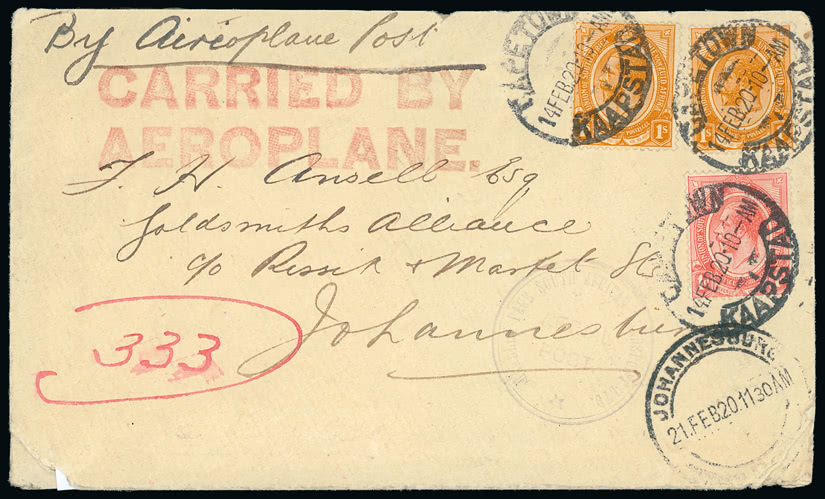 By Aireoplane Post
CARRIED BY
AEROPLANE.
CAPETOWN
14 FEB 20·10-AM
KAAPSTAD
1s
CAPETOWN
14 FEB 20·10-AM
KAAPSTAD
1s
CAPETOWN
14 FEB 20·10-AM
KAAPSTAD
F. H. Ansell Esq
Goldsmiths Alliance
c/o Rissik + Market Sts
Johannesburg
333
SOUTH AFRICA
JOHANNESBURG
21.FEB 20.11 30AM